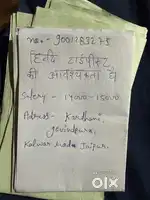 no:- 9001783275
हिन्दी टाईपिस्ट
की आवश्यकता है
Salary - 14000 - 15000
Adress - Kardhani,
govindpura,
Kalwar Jaipur.
olx